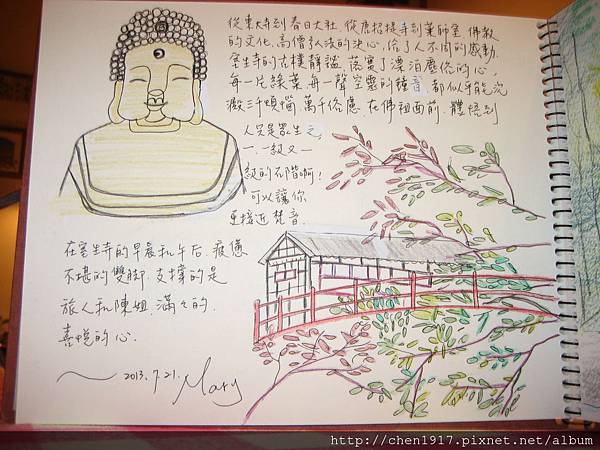 從東大寺到春日大社,從唐招提寺到藥師寺,佛教
的文化,高僧弘法的決心,給了人不同的感動.
室生寺的古樸靜謐,落實了漂泊塵俗的心.
每一片綠葉,每一聲空靈的鐘音,都似乎能沉
澱三千煩惱,萬千俗慮,在佛祖面前,體悟到
人只是眾生之
一.一級又一
級的石階啊!
可以讓你
更接近梵音.
在室生寺的早晨和午后.疲憊
不堪的雙腳.支撐的是
旅人和陳姐.滿滿的.
喜悅的心.
~ 2013.7.21. Mary
http://chen1917.pixnet.net/album